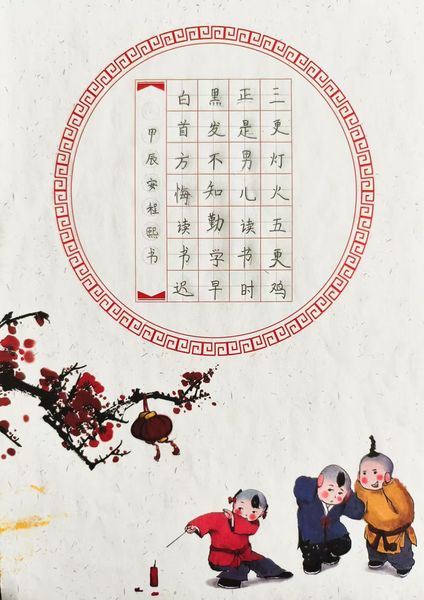 三更灯火五更鸡
正是男儿读书时
黑发不知勤学早
白首方悔读书迟
甲辰安程熙书